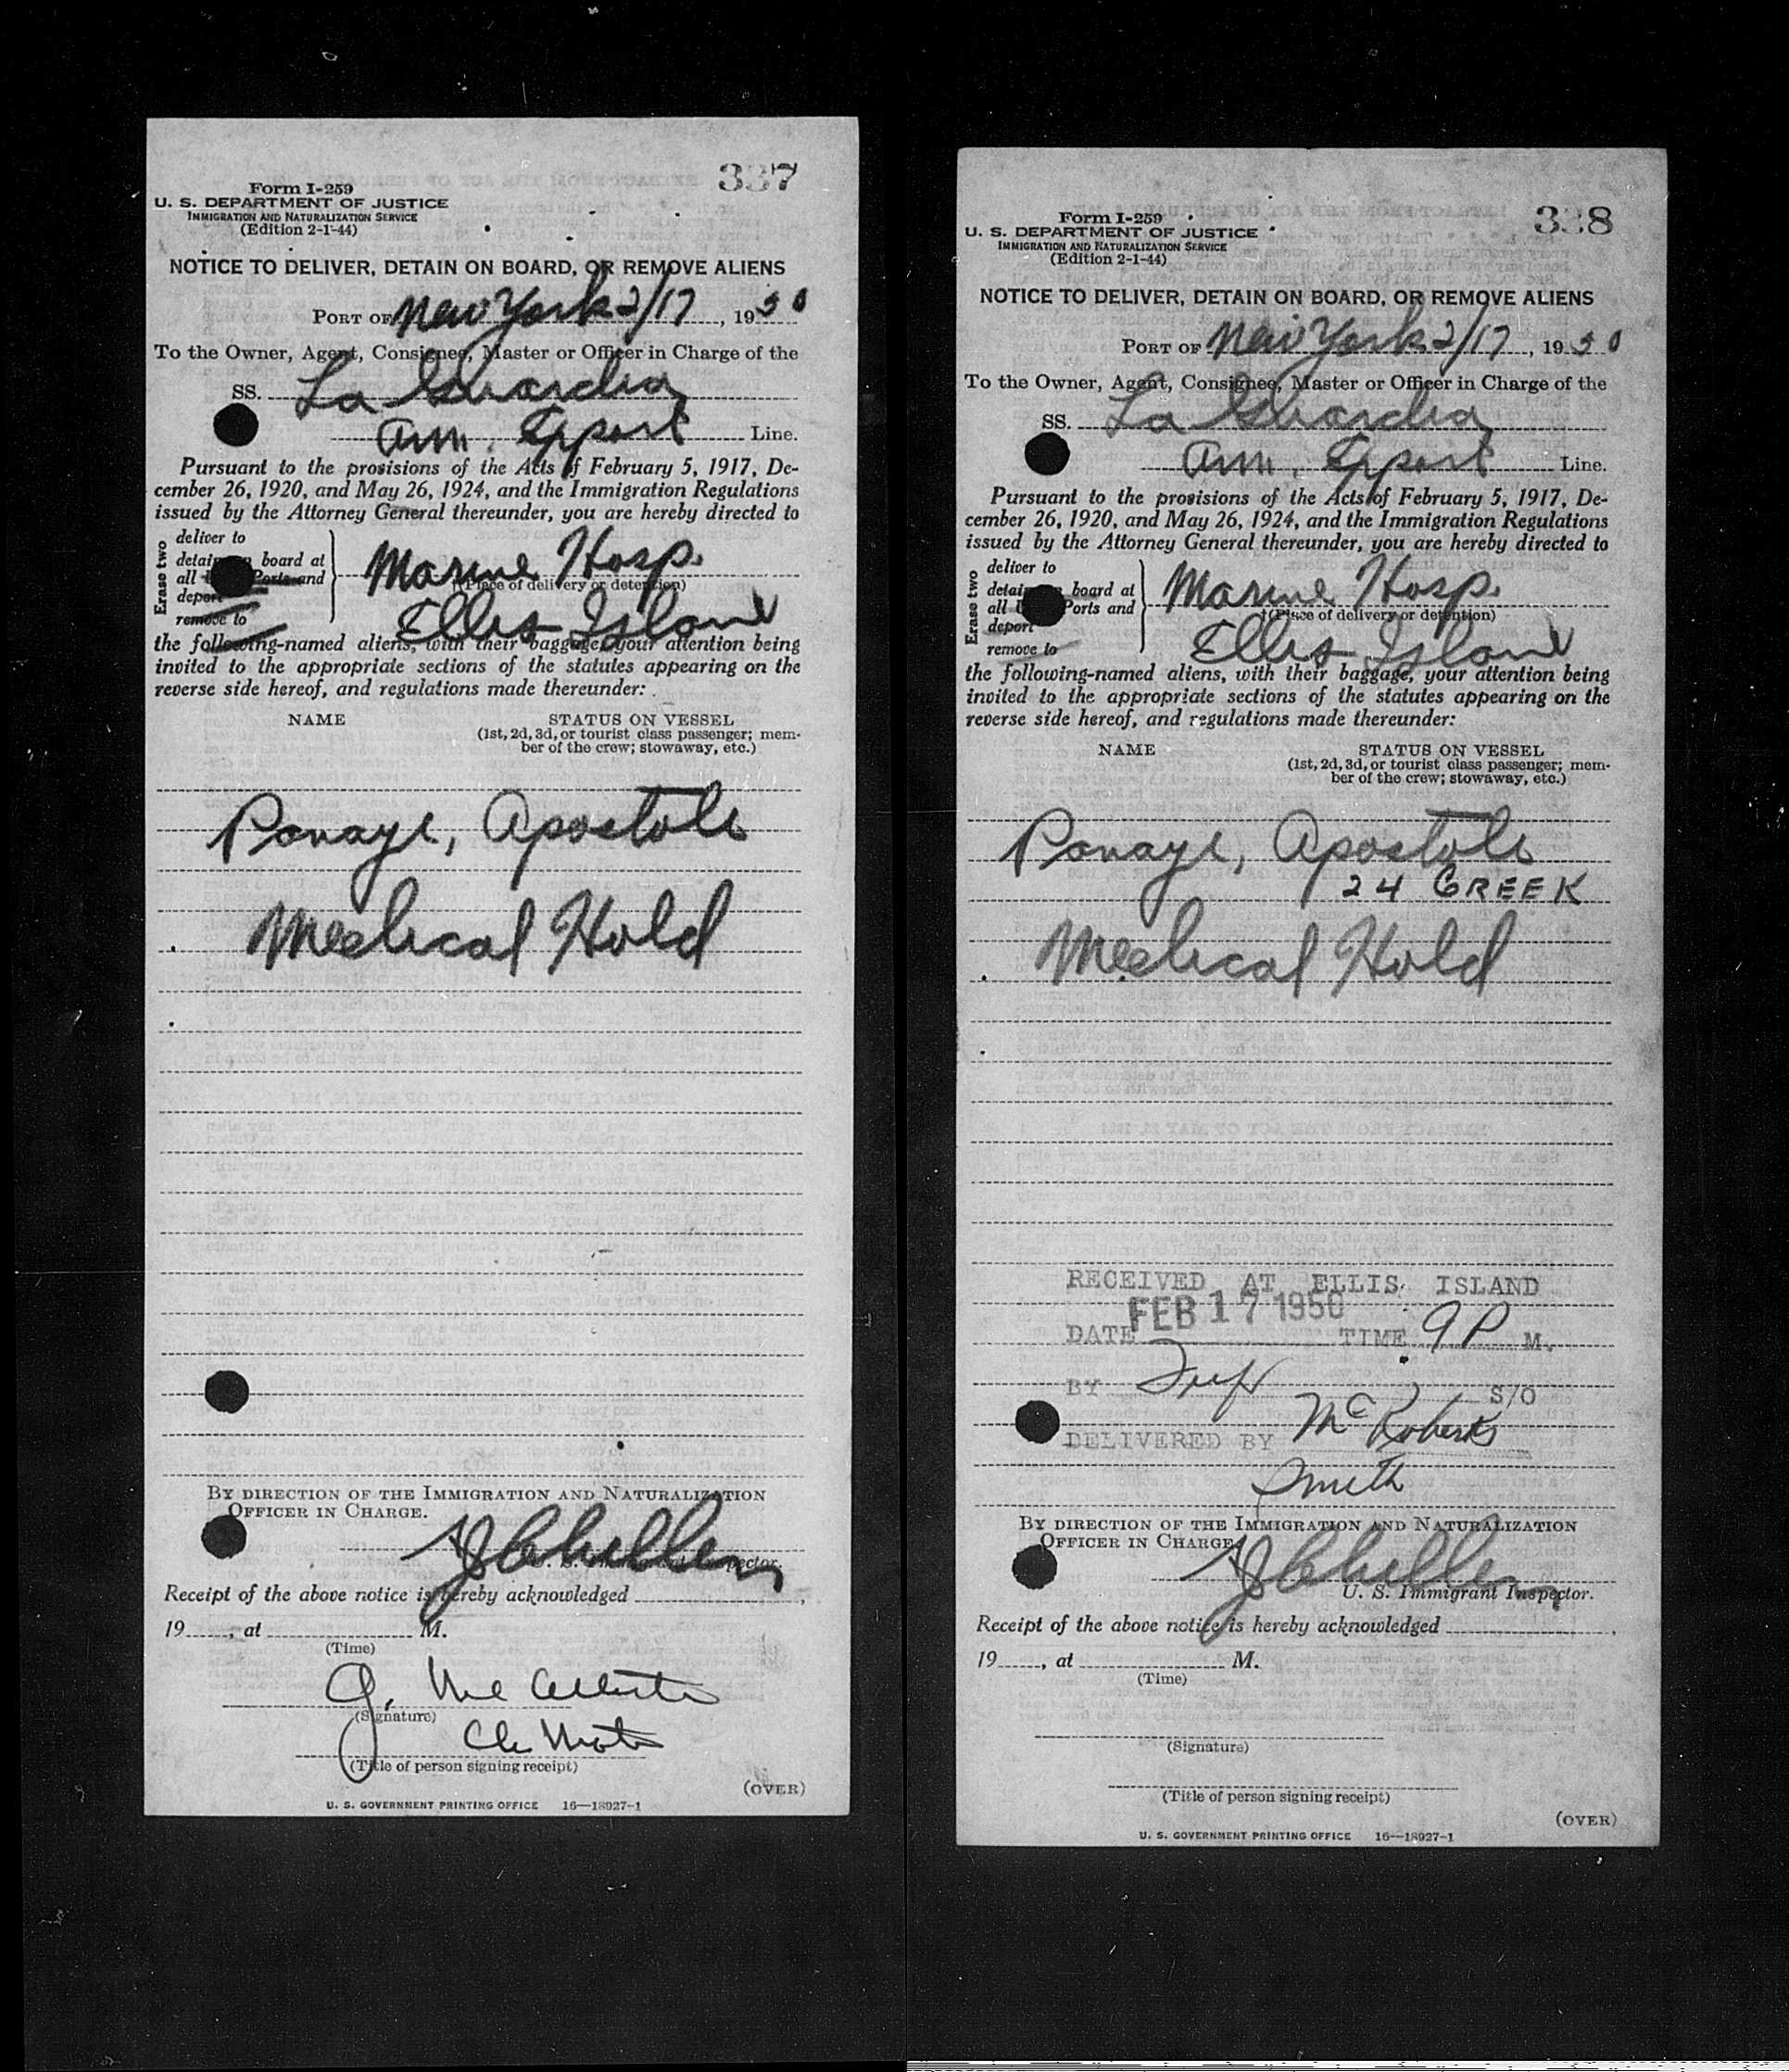 337
Form I-259
U. S. DEPARTMENT OF JUSTICE
IMMIGRATION AND NATURALIZATION SERVICE
(Edition 2-1-44)
NOTICE TO DELIVER, DETAIN ON BOARD, OR REMOVE ALIENS
PORT OF New York 2/17, 1950
To the Owner, Agent, Consignee, Master or Officer in Charge of the
SS. La Guardia
Am. Export Line.
Pursuant to the provisions of the Acts of February 5, 1917, De-
cember 26, 1920, and May 26, 1924, and the Immigration Regulations
issued by the Attorney General thereunder, you are hereby directed to
Erase two
deliver to
board at
all Ports and
deport
remove to
Marine Hosp.
(Place of delivery or detention)
Ellis Island
the following-named aliens, with their baggage, your attention being
invited to the appropriate sections of the statutes appearing on the
reverse side hereof, and regulations made thereunder:
NAME STATUS ON VESSEL
(1st, 2d, 3d, or tourist class passenger; mem-
ber of the crew; stowaway, etc.)
Panayi, Apostoli
Medical Hold
BY DIRECTION OF THE IMMIGRATION AND NATURALIZATION
OFFICER IN CHARGE.
U. S. Immigrant Inspector.
Receipt of the above notice is hereby acknowledged
19 , at M.
(Time)
(Signature)
(Title of person signing receipt)
(OVER)
U. S. GOVERNMENT PRINTING OFFICE 16—18927-1
338
Form I-259
U. S. DEPARTMENT OF JUSTICE
IMMIGRATION AND NATURALIZATION SERVICE
(Edition 2-1-44)
NOTICE TO DELIVER, DETAIN ON BOARD, OR REMOVE ALIENS
PORT OF New York 2/17, 1950
To the Owner, Agent, Consignee, Master or Officer in Charge of the
SS. La Guardia
Am. Export Line.
Pursuant to the provisions of the Acts of February 5, 1917, De-
cember 26, 1920, and May 26, 1924, and the Immigration Regulations
issued by the Attorney General thereunder, you are hereby directed to
Erase two
deliver to
board at
all Ports and
deport
remove to
Marine Hosp.
†(Place of delivery or detention)
Ellis Island
the following-named aliens, with their baggage, your attention being
invited to the appropriate sections of the statutes appearing on the
reverse side hereof, and regulations made thereunder:
NAME STATUS ON VESSEL
(1st, 2d, 3d, or tourist class passenger; mem-
ber of the crew; stowaway, etc.)
Panayi, Apostoli
24 GREEK
Medical Hold
RECEIVED AT ELLIS ISLAND
DATE FEB 17 1950 TIME 9 P M.
BY S/O
DELIVERED BY McRoberts
Smith
BY DIRECTION OF THE IMMIGRATION AND NATURALIZATION
OFFICER IN CHARGE
U. S. Immigrant Inspector.
Receipt of the above notice is hereby acknowledged
19 , at M.
(Time)
(Signature)
(Title of person signing receipt)
(OVER)
U. S. GOVERNMENT PRINTING OFFICE 16—18927-1